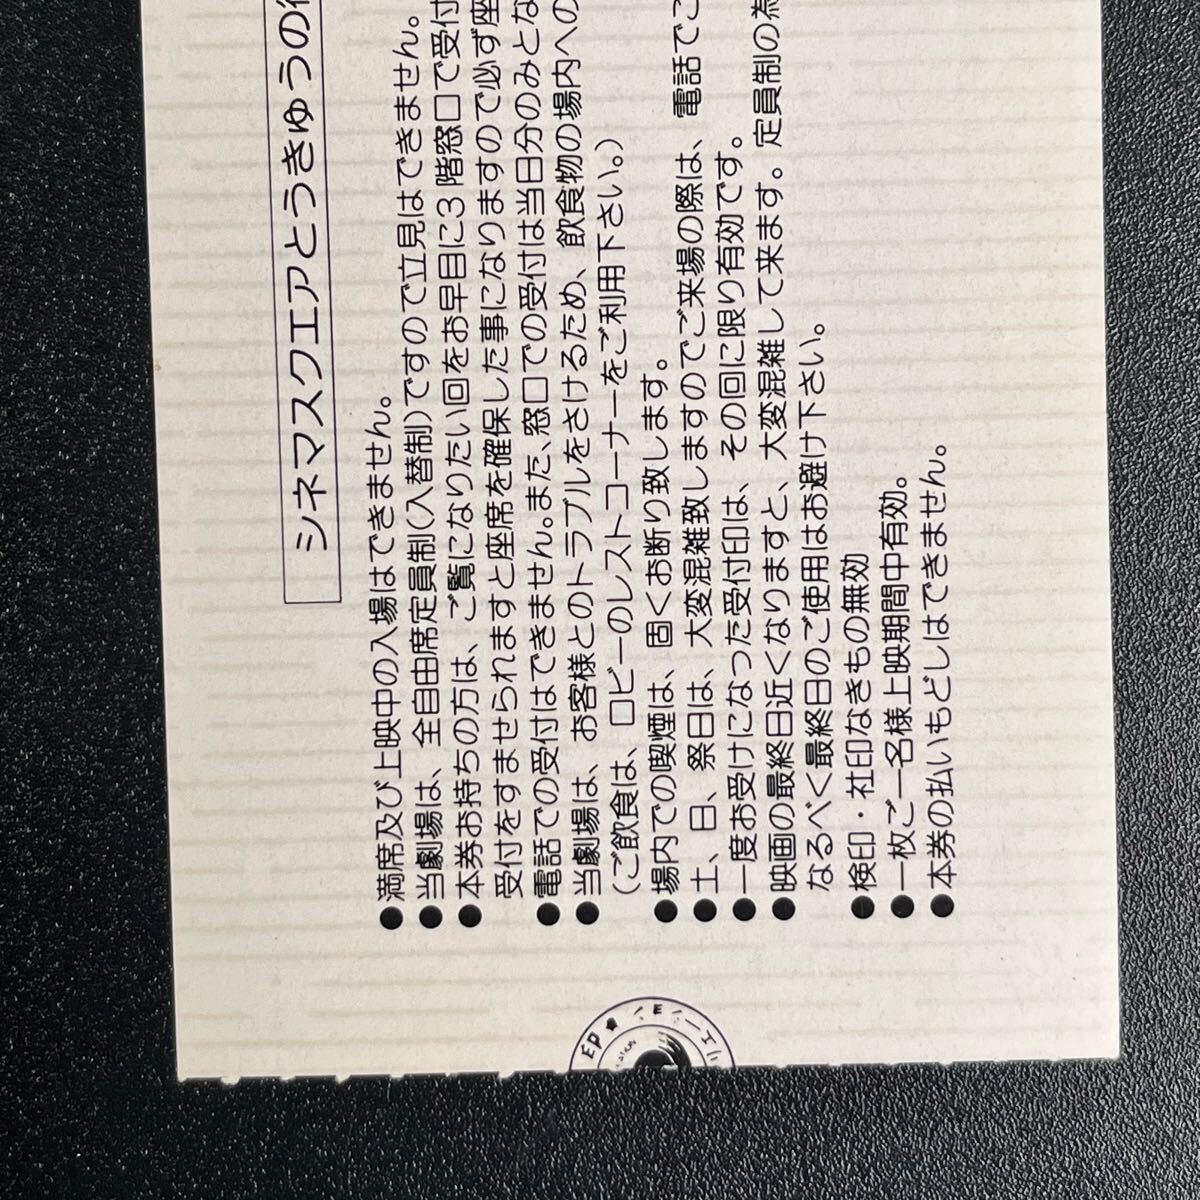 シネマスクエアとうきゅうの
●満席及び上映中の入場はできません。
●当劇場は、全自由席定員制(入替制)ですので立見はできません。
●本券お持ちの方は、ご覧になりたい回をお早目に3階窓口で受付
受付をすませられますと座席を確保した事になりますので必ず座
●電話での受付はできません。また、窓口での受付は当日分のみとな
●当劇場は、お客様とのトラブルをさけるため、飲食物の場内への
(ご飲食は、ロビーのレストコーナーをご利用下さい。)
●場内での喫煙は、固くお断り致します。
●土、日、祭日は、大変混雑致しますのでご来場の際は、電話でご
●一度お受けになった受付印は、その回に限り有効です。
●映画の最終日近くなりますと、大変混雑して来ます。定員制の為
なるべく最終日のご使用はお避け下さい。
●検印・社印なきもの無効
●一枚ご一名様上映期間中有効。
●本券の払いもどしはできません。